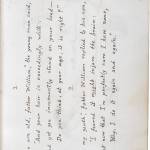 are old, father William," the young man said,
"And your hair is exceedingly white:
And yet you incessantly stand on your head—
Do you think, at your age, it is right?"
2.
my youth," father William replied to his son,
"I feared it might injure the brain:
But now that I'm perfectly sure I have none,
Why, I do it again and again."